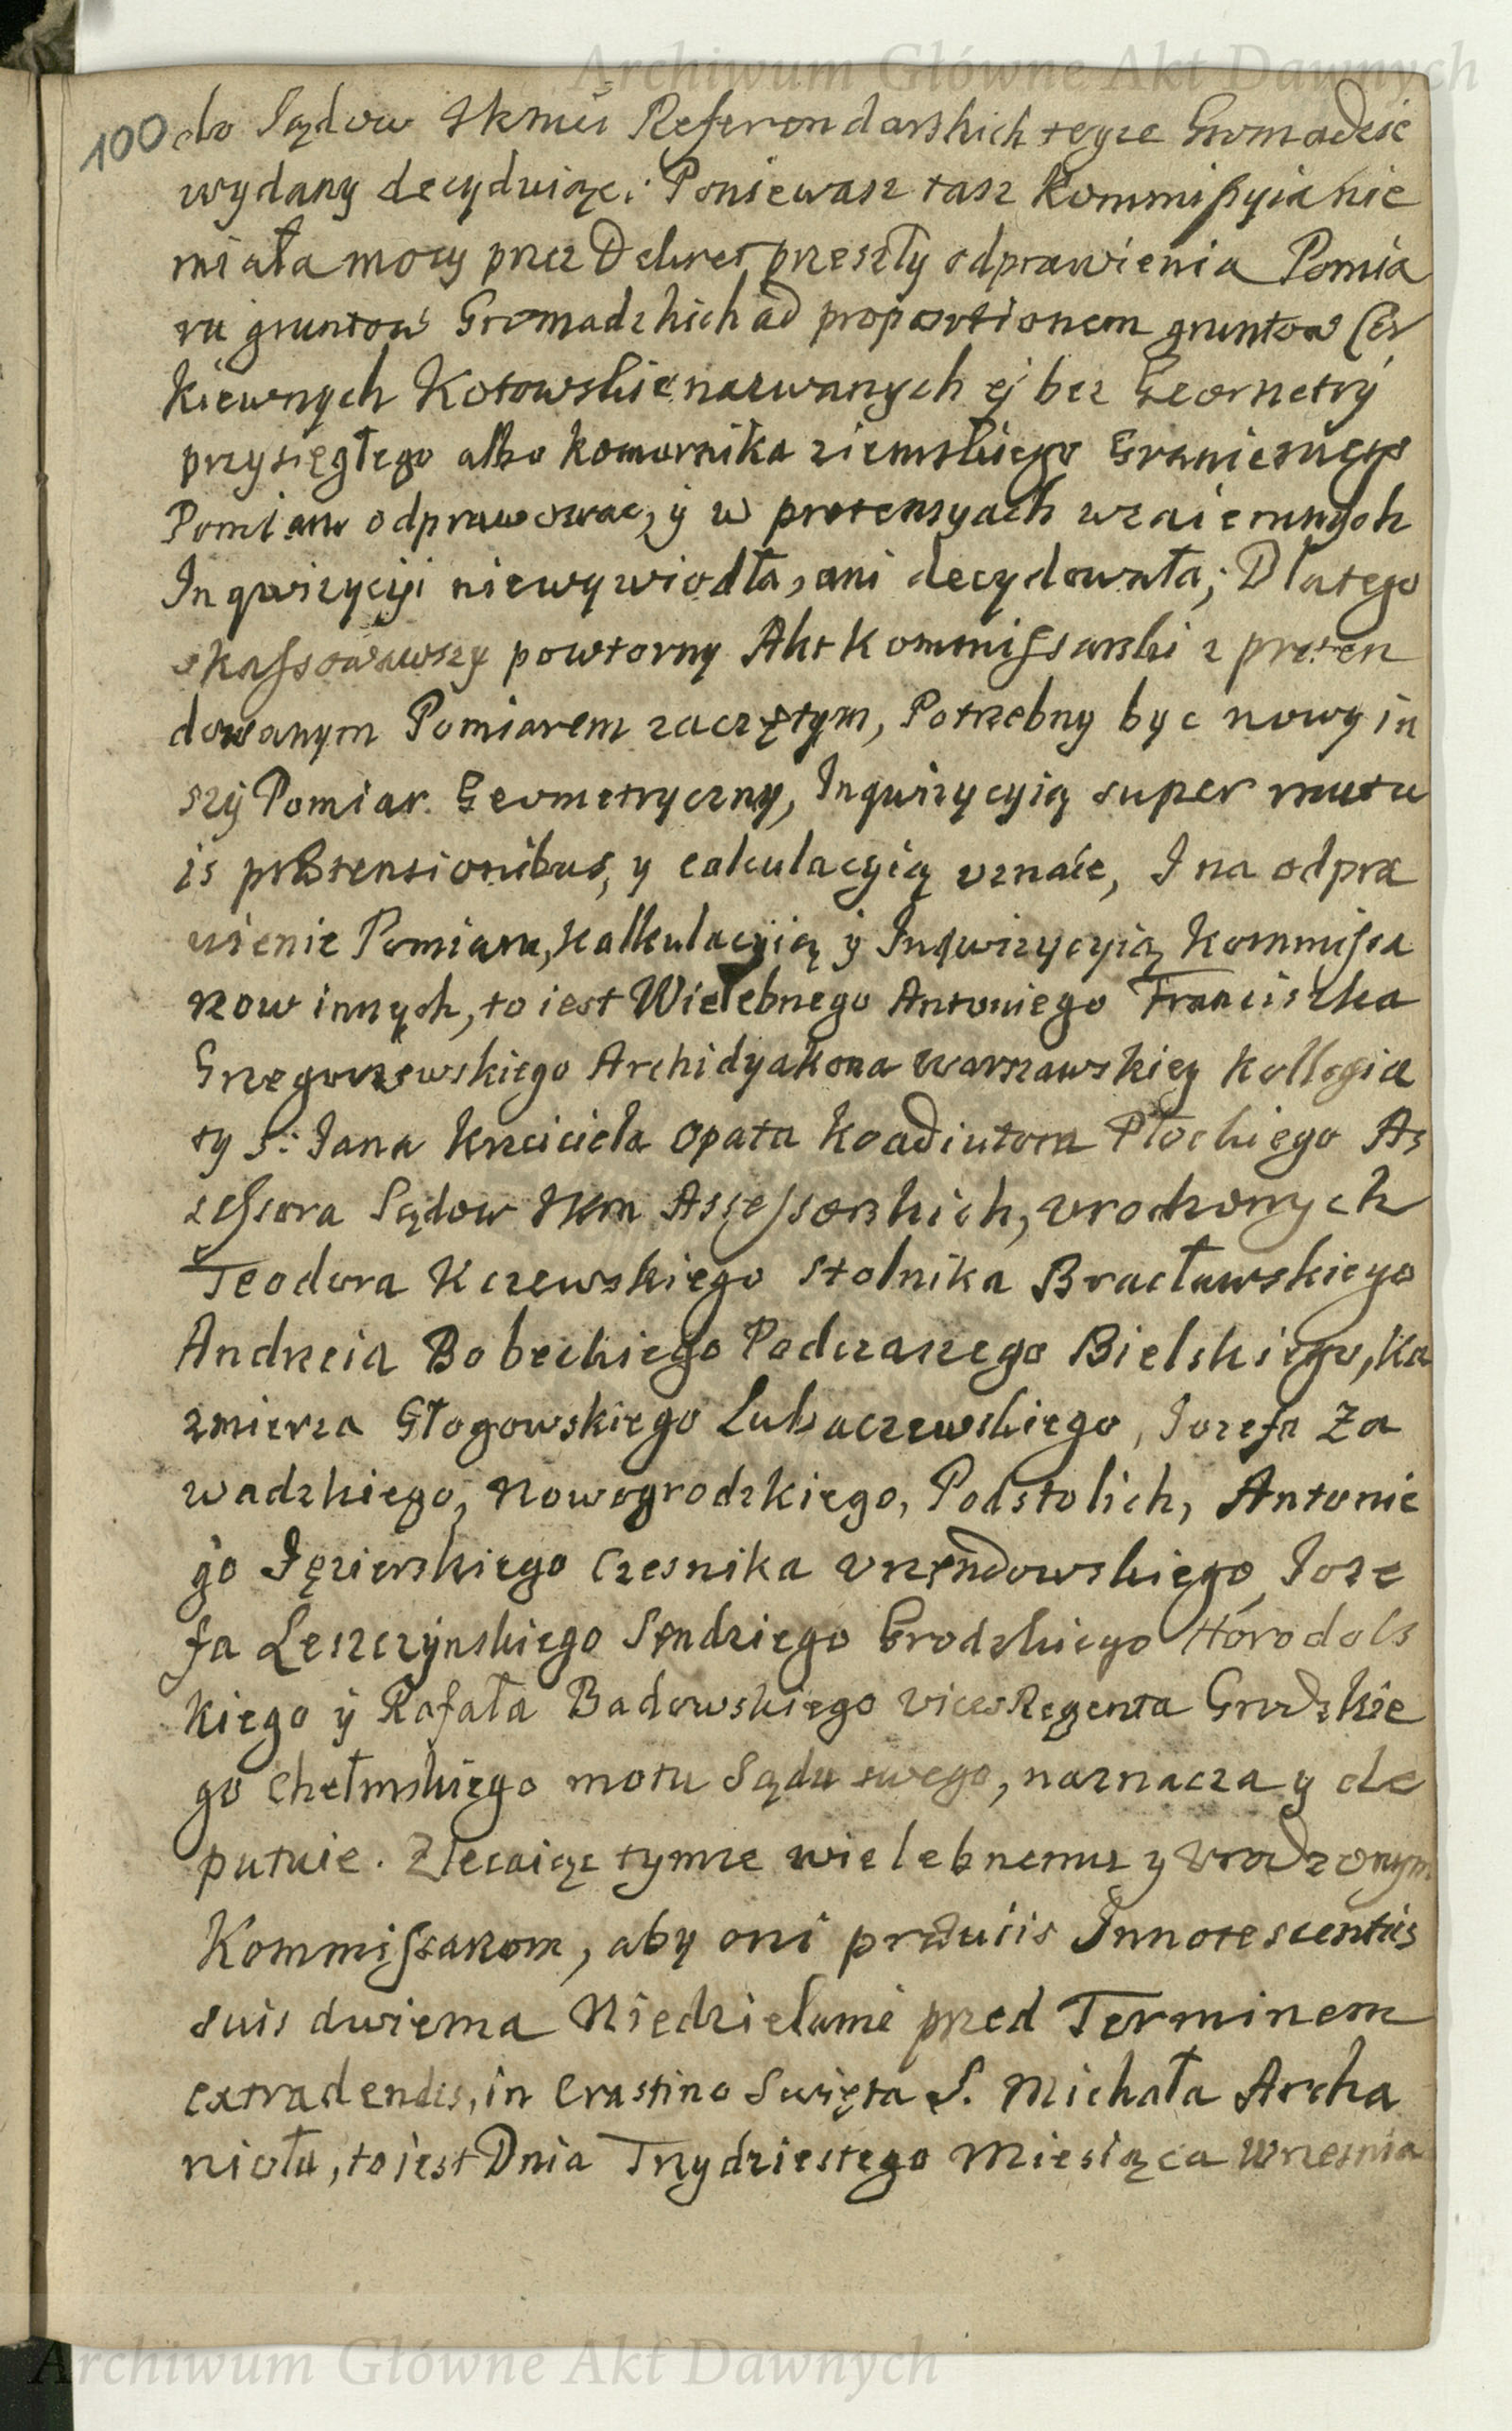 Archiwum Główne Akt Dawnych
100
do Sądow JKmci Referendarskich teyze Gromadzie
wydany decyduiąc; Poniewasz tasz Kommissyia nie
miała mocy przez Dekret przeszły odprawienia Pomia
ru gruntow Gromadzkich ad proportionem gruntow Cer
kiewnych Kotowskie nazwanych ÿ bez Geometry
przysięgłego albo Komornika ziemskiego Granicznego
Pomiaru odprawowac, ÿ w pretensyach wzaiemnych
Inqwizycyi niewywiodła, ani decydowała; Dlatego
skassowawszy powtorny Akt Kommissarski z preten
dowanym Pomiarem zaczętym, Potrzebny byc nowy in
szÿ Pomiar Geometryczny, Inquizycyią super mutu
is prætensionibus, y calculacyią uznaie, I na odpra
wienie Pomiaru, kalkulacyią ÿ Inqwizycyią Kommissa
rzow innych, to iest Wielebnego Antoniego Franciszka
Grzegorzewskiego Archidyakona warszawskiey Kollegia
ty S: Jana Krzciciela Opata Koadiutora Płockiego As
sessora Sądow JKm Assessorskich, urodzonych
Teodora Kczewskiego Stolnika Bracławskiego
Andrzeia Bobeckiego Podczaszego Bielskiego, Ka
zmierza Głogowskiego Lubaczewskiego, Jozefa Za
wadzkiego, Nowogrodzkiego, Podstolich, Antonie
go Jęzierskiego Czesnika Urzendowskiego Joze
fa Leszczÿnskiego Sendziego Grodzkiego Horodels
kiego ÿ Rafała Badowskiego vices Regenta Grodzkie
go Chełmskiego motu Sądu swego, naznacza y de
putuie. Zlecaiąc tymze wielebnemu y Urodzonym
Kommissarzom, aby oni præuiis Innotescentiis
suis dwiema Niedzielami przed Terminem
extradendis, in Crastino Swięta S. Michała Archa
nioła, to iest Dnia Trzydziestego Miesiąca Wrzesnia
Archiwum Główne Akt Dawnych